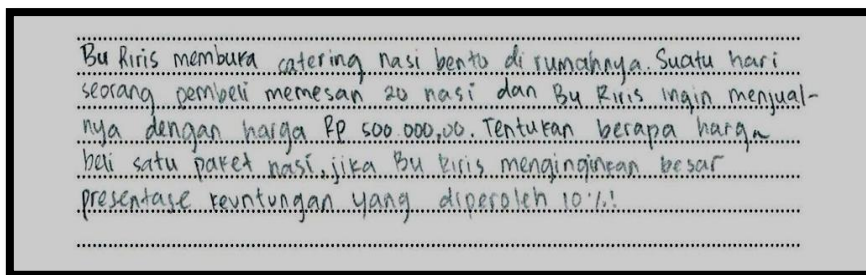 Bu Riris membuka catering nasi bento di rumahnya. Suatu hari
seorang pembeli memesan 20 nasi dan Bu Riris ingin menjual-
nya dengan harga Rp 500.000,00. Tentukan berapa harga
beli satu paket nasi, jika Bu Riris menginginkan besar
presentase keuntungan yang diperoleh 10%!